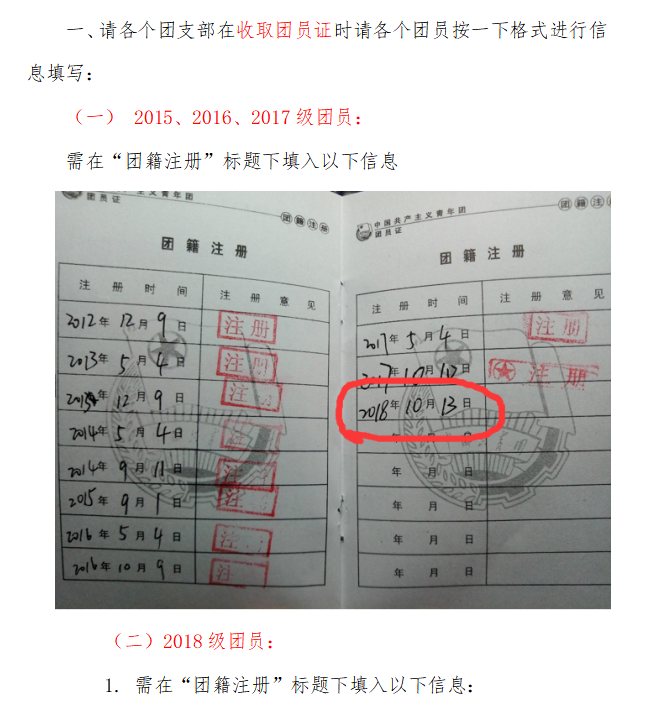 一、请各个团支部在收取团员证时请各个团员按一下格式进行信
息填写：
（一） 2015、2016、2017级团员：
需在“团籍注册”标题下填入以下信息
中国共产主义青年团
团员证
团籍注册
团籍注册
注册时间 注册意见
2012年12月9日 注册
2013年5月4日 注册
年12月9日 注册
2014年5月4日
2014年9月11日 注册
2015年9月1日 注册
2016年5月4日 注
2016年10月9日 注
中国共产主义青年团
团员证
团籍注册
团籍注册
注册时间 注册意见
2017年5月4日 注册
2017年10月12日 注册
2018年10月13日
年 月 日
年 月 日
年 月 日
年 月 日
年 月 日
（二）2018级团员：
1. 需在“团籍注册”标题下填入以下信息：